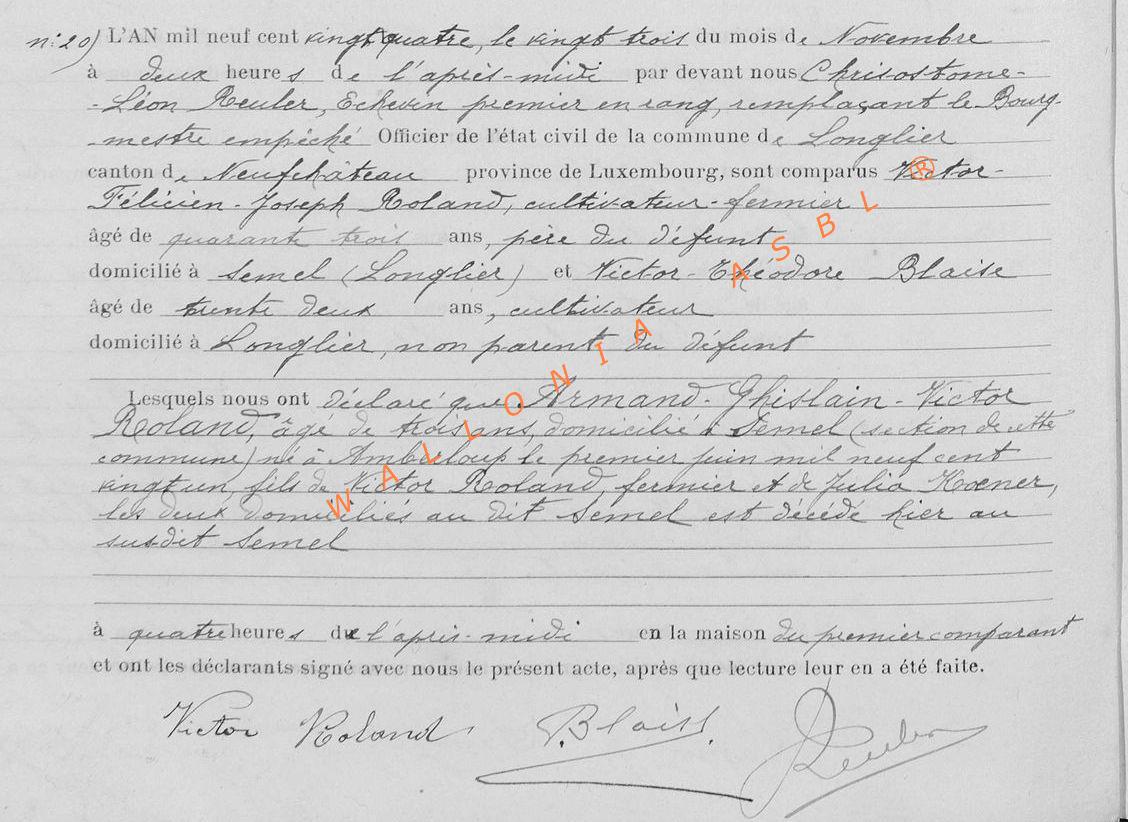 n: 20) L'AN mil neuf cent vingt quatre, le vingt trois du mois de Novembre
à deux heures de l'après-midi par devant nous Chrisostome-
-Léon Reuler, Echevin premier en rang, remplaçant le Bourg-
-mestre empêché Officier de l'état civil de la commune de Longlier
canton de Neufchâteau province de Luxembourg, sont comparus Victor-
Félicien-Joseph Roland, cultivateur-fermier
âgé de quarante trois ans, père du défunt
domicilié à Semel (Longlier) et Victor-Théodore Blaise
âgé de trente deux ans, cultivateur
domicilié à Longlier, non parent du défunt
Lesquels nous ont déclaré que Armand-Ghislain-Victor
Roland, âgé de trois ans, domicilié à Semel (section de cette
commune) né à Amberloup le premier juin mil neuf cent
vingt un, fils de Victor Roland, fermier et de Julia Koener,
les deux domiciliés au dit Semel est décédé hier au
susdit Semel
à quatre heures de l'après-midi en la maison du premier comparant
et ont les déclarants signé avec nous le présent acte, après que lecture leur en a été faite.
Victor Roland V. Blaise Reuler
WALLONIA ASBL ®